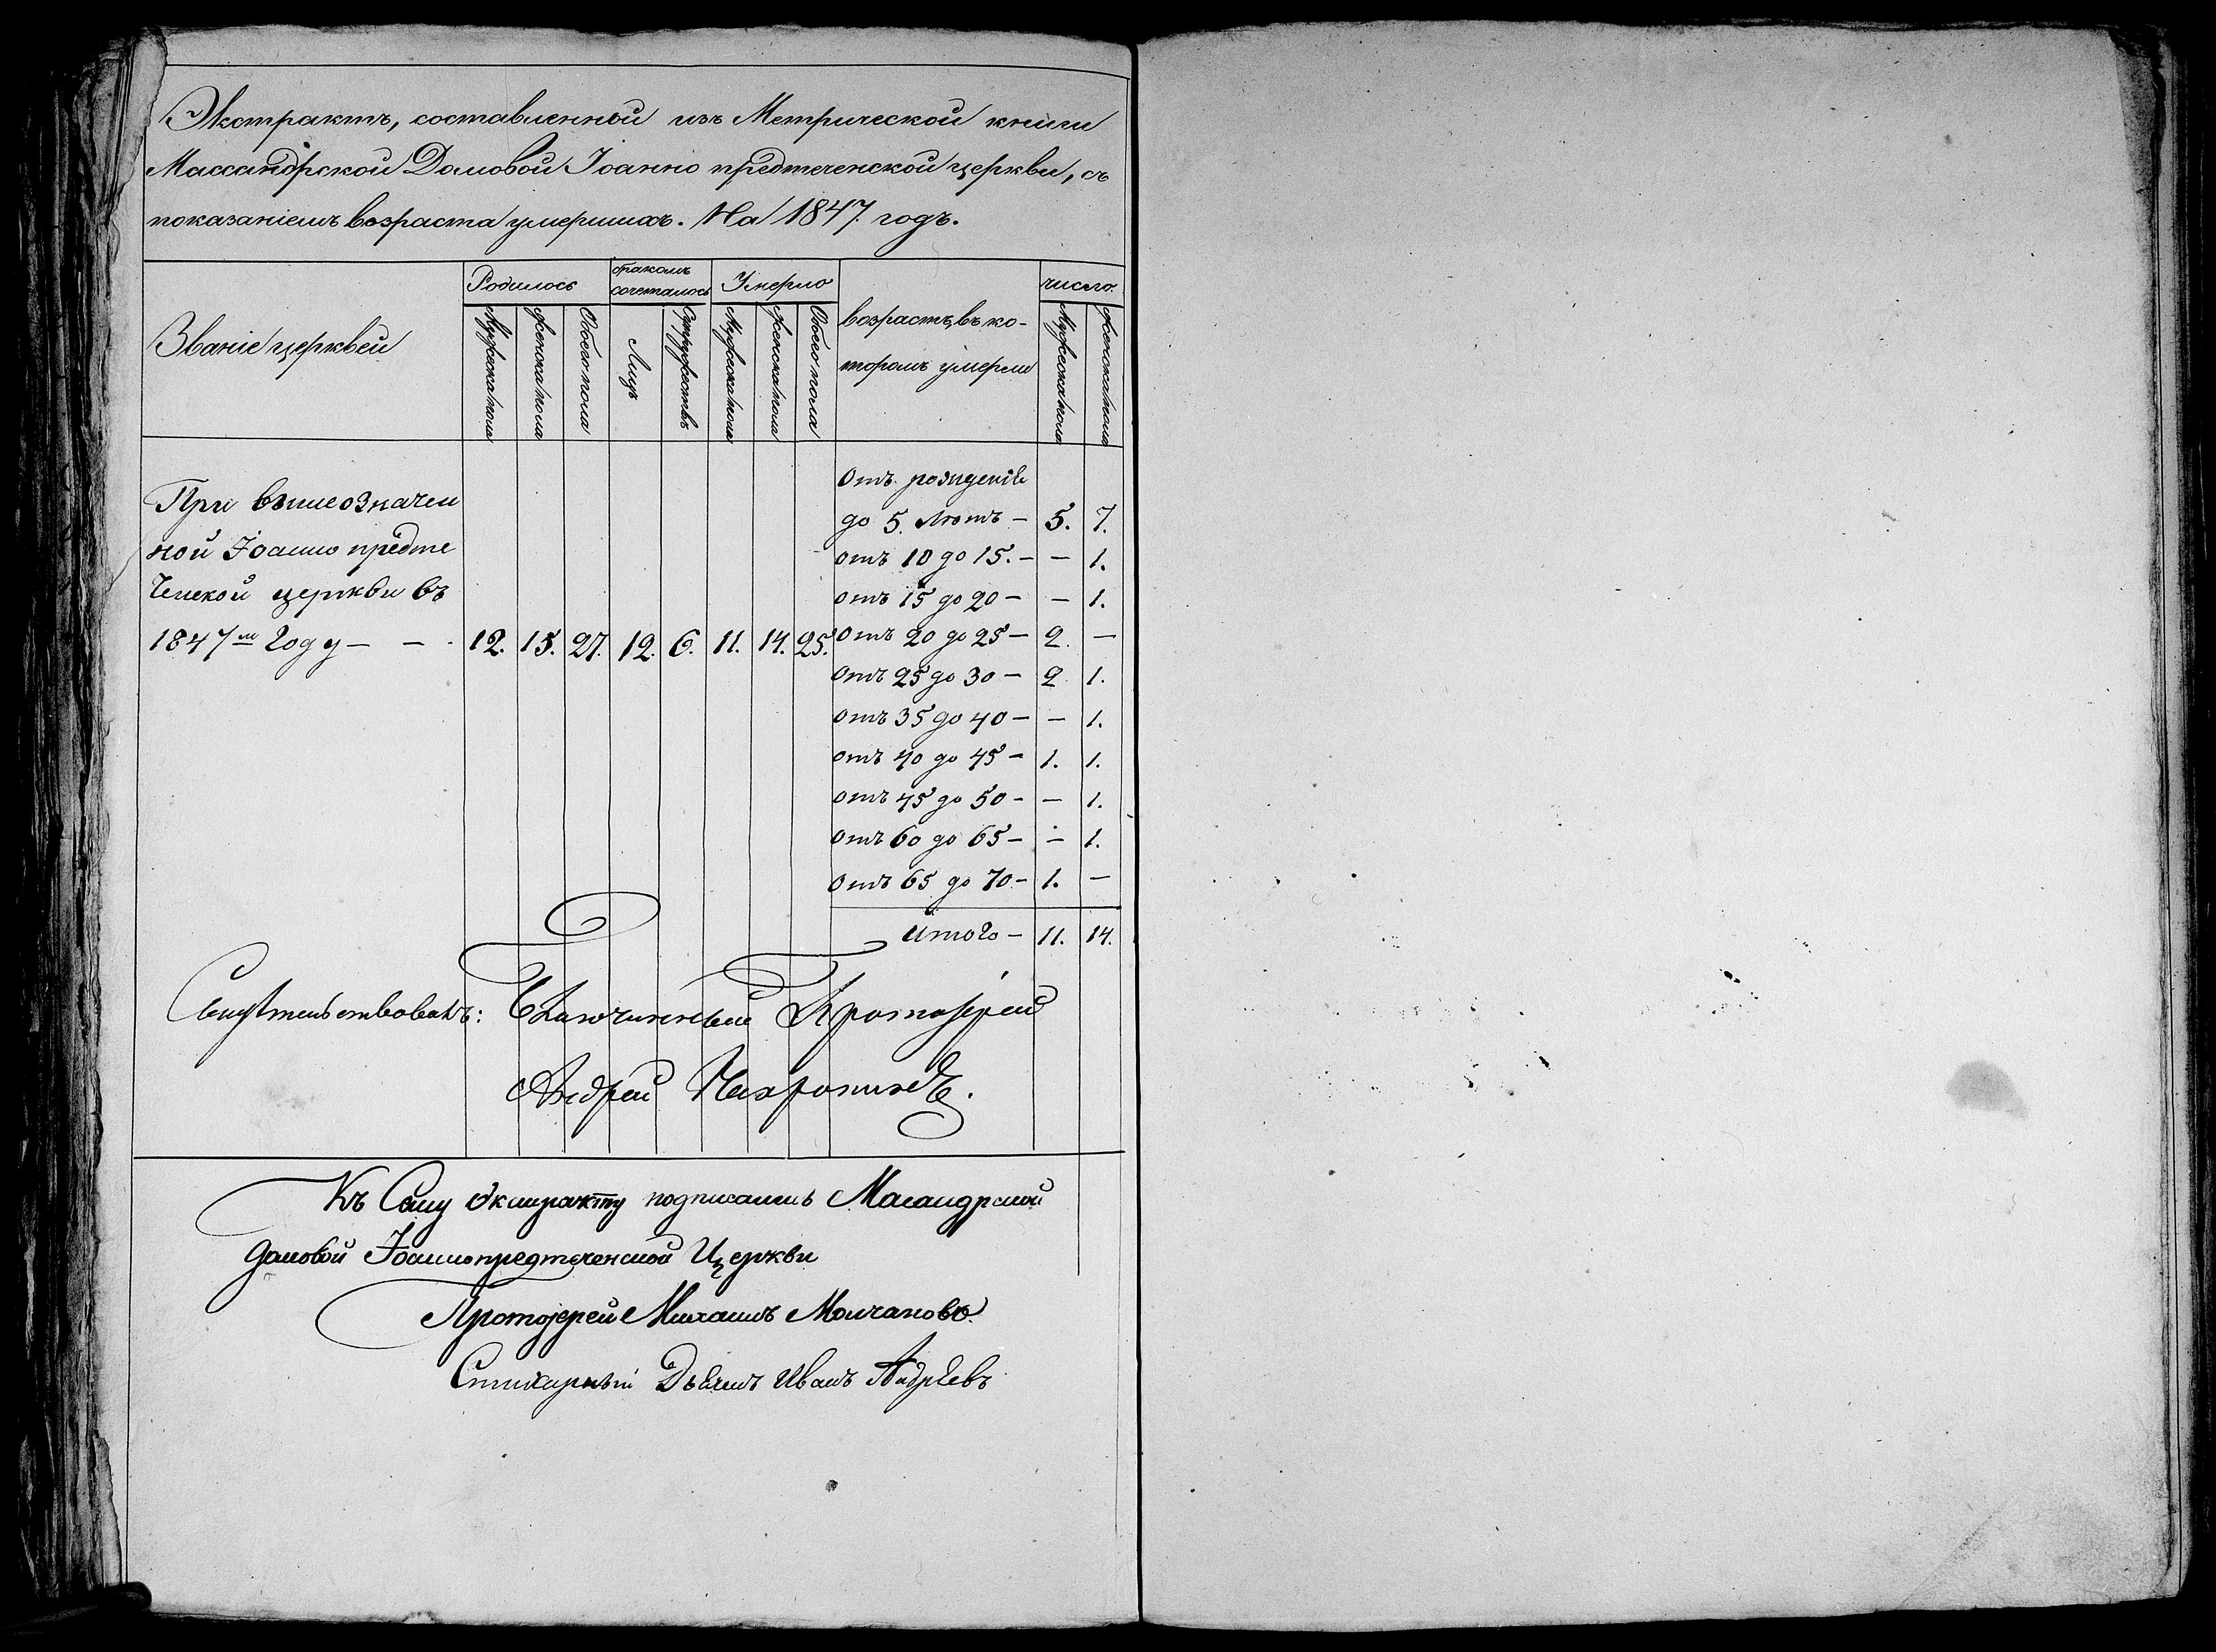 Экстрактъ, составленной изъ Метрической книги
Массандрской Домовой Іоанно предтеченской церкви, съ
показаніемъ возраста умершихъ. На 1847. годъ.
Званіе церквей
Родилось
бракомъ сочеталось
Умерло
возрастъ, въ ко-
торомъ умерли
число.
Мужеска пола
Женска пола
Обоего пола
Лицъ
Супружествъ
Мужеска пола
Женска пола
Обоего пола
Мужеска пола
Женска пола
При вышеозначен
ной Іоанно предте
ченской церкви въ
1847м году — — 12. 15. 27. 12. 6. 11. 14. 25.
Отъ рожденія
до 5. лѣтъ — 5. 7.
отъ 10 до 15. — — 1.
отъ 15 до 20 — — 1.
отъ 20 до 25 — 2. —
отъ 25 до 30 — 2. 1.
отъ 35 до 40 — — 1.
отъ 40 до 45 — 1. 1.
отъ 45 до 50 — — 1.
отъ 60 до 65 — — 1.
отъ 65 до 70 — 1. —
Итого — 11. 14.
Свидѣтельствовалъ: Благочинный Протоіерей
Андрей
Къ Сему Экстракту подписались Масандрской
домовой Іоаннопредтеченской Церкви
Протоіерей Михаилъ Молчановъ.
Стихарный Дьячекъ Иванъ Андрѣевъ